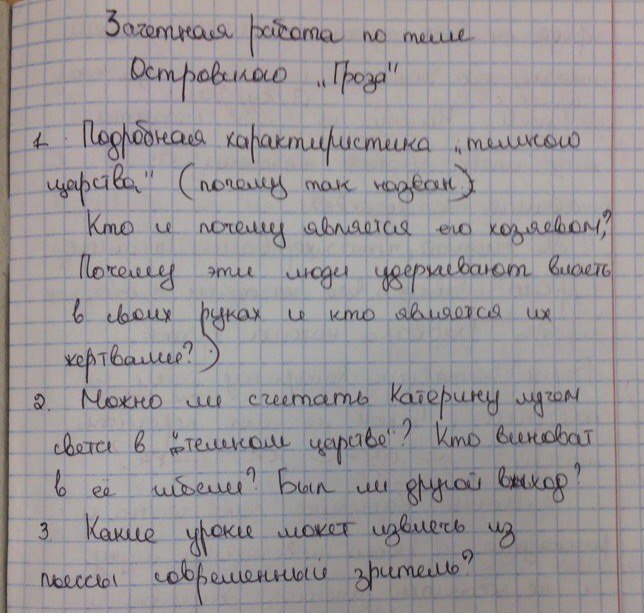 Зачетная работа по теме
Островского „Гроза"
1. Подробная характиристика „темного
царства" (почему так назван)
Кто и почему является его хозяевом?
Почему эти люди удерживают власть
в своих руках и кто является их
жертвами?)
2. Можно ли считать Катерину лучом
света в "темном царстве"? Кто виноват
в её гибели? Был ли другой выход?
3 Какие уроки может извлечь из
пьессы современный зритель?